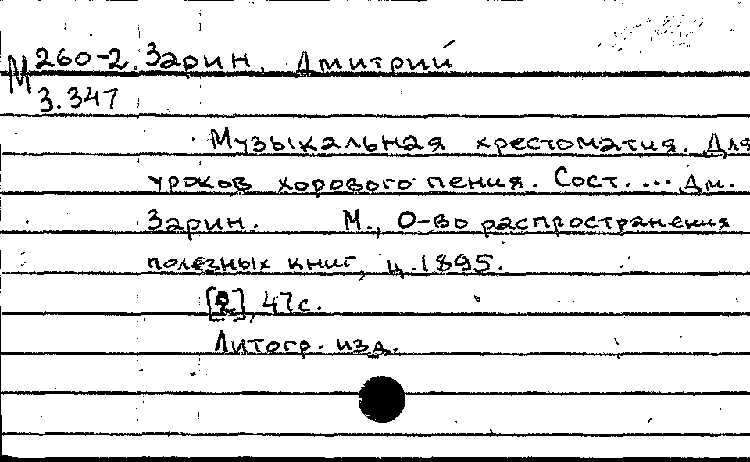 М 260-2. Зарин, Дмитрий
3.347
Музыкальная хрестоматия. Для
уроков хорового пения. Сост. ... Дм.
Зарин. М., О-во распространения
полезных книг, ц. 1895.
[2], 47 с.
Литогр. изд.